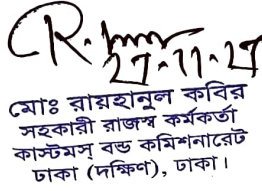 ২৭-১১-২৭
মোঃ রায়হানুল কবির
সহকারী রাজস্ব কর্মকর্তা
কাস্টমস্ বন্ড কমিশনারেট
ঢাকা (দক্ষিণ), ঢাকা।